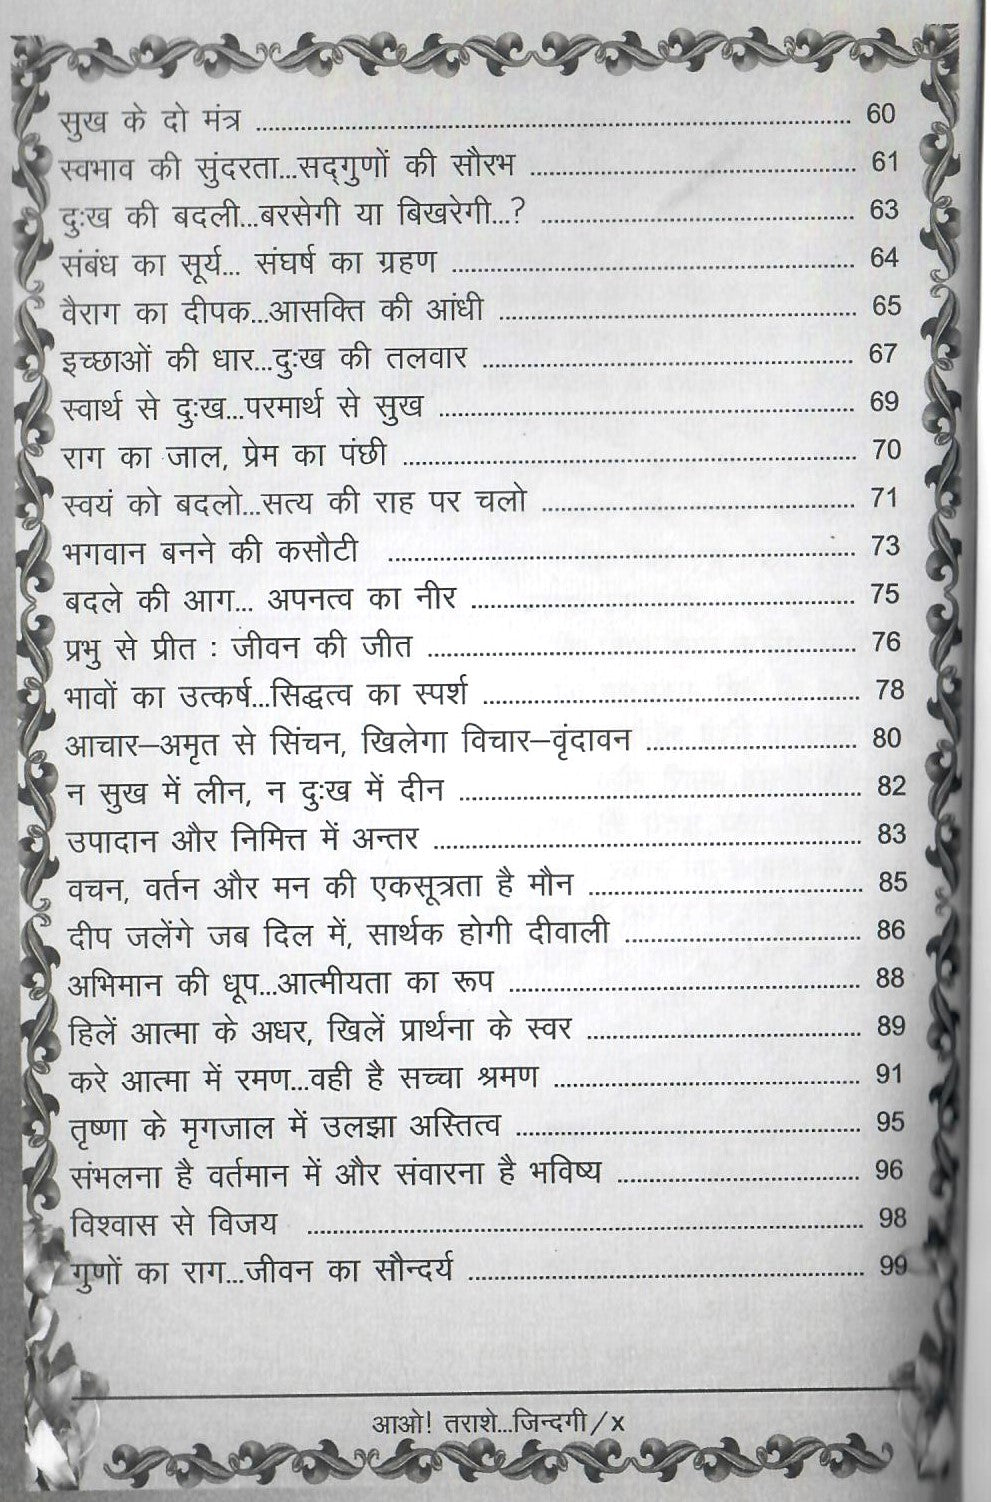 सुख के दो मंत्र ........................................................................................ 60
स्वभाव की सुंदरता...सद्गुणों की सौरभ ................................................ 61
दुःख की बदली...बरसेगी या बिखरेगी...? .............................................. 63
संबंध का सूर्य... संघर्ष का ग्रहण ............................................................ 64
वैराग का दीपक...आसक्ति की आंधी ..................................................... 65
इच्छाओं की धार...दुःख की तलवार ....................................................... 67
स्वार्थ से दुःख...परमार्थ से सुख ............................................................. 69
राग का जाल, प्रेम का पंछी ................................................................... 70
स्वयं को बदलो...सत्य की राह पर चलो .............................................. 71
भगवान बनने की कसौटी ..................................................................... 73
बदले की आग... अपनत्व का नीर ......................................................... 75
प्रभु से प्रीत : जीवन की जीत ............................................................... 76
भावों का उत्कर्ष...सिद्धत्व का स्पर्श ........................................................ 78
आचार–अमृत से सिंचन, खिलेगा विचार–वृंदावन ............................... 80
न सुख में लीन, न दुःख में दीन ............................................................ 82
उपादान और निमित्त में अन्तर ............................................................... 83
वचन, वर्तन और मन की एकसूत्रता है मौन ........................................ 85
दीप जलेंगे जब दिल में, सार्थक होगी दीवाली ................................... 86
अभिमान की धूप...आत्मीयता का रूप .................................................... 88
हिलें आत्मा के अधर, खिलें प्रार्थना के स्वर ......................................... 89
करे आत्मा में रमण...वही है सच्चा श्रमण .............................................. 91
तृष्णा के मृगजाल में उलझा अस्तित्व ................................................... 95
संभलना है वर्तमान में और संवारना है भविष्य .................................... 96
विश्वास से विजय .................................................................................. 98
गुणों का राग...जीवन का सौन्दर्य ........................................................... 99
आओ! तराशे...जिन्दगी/x